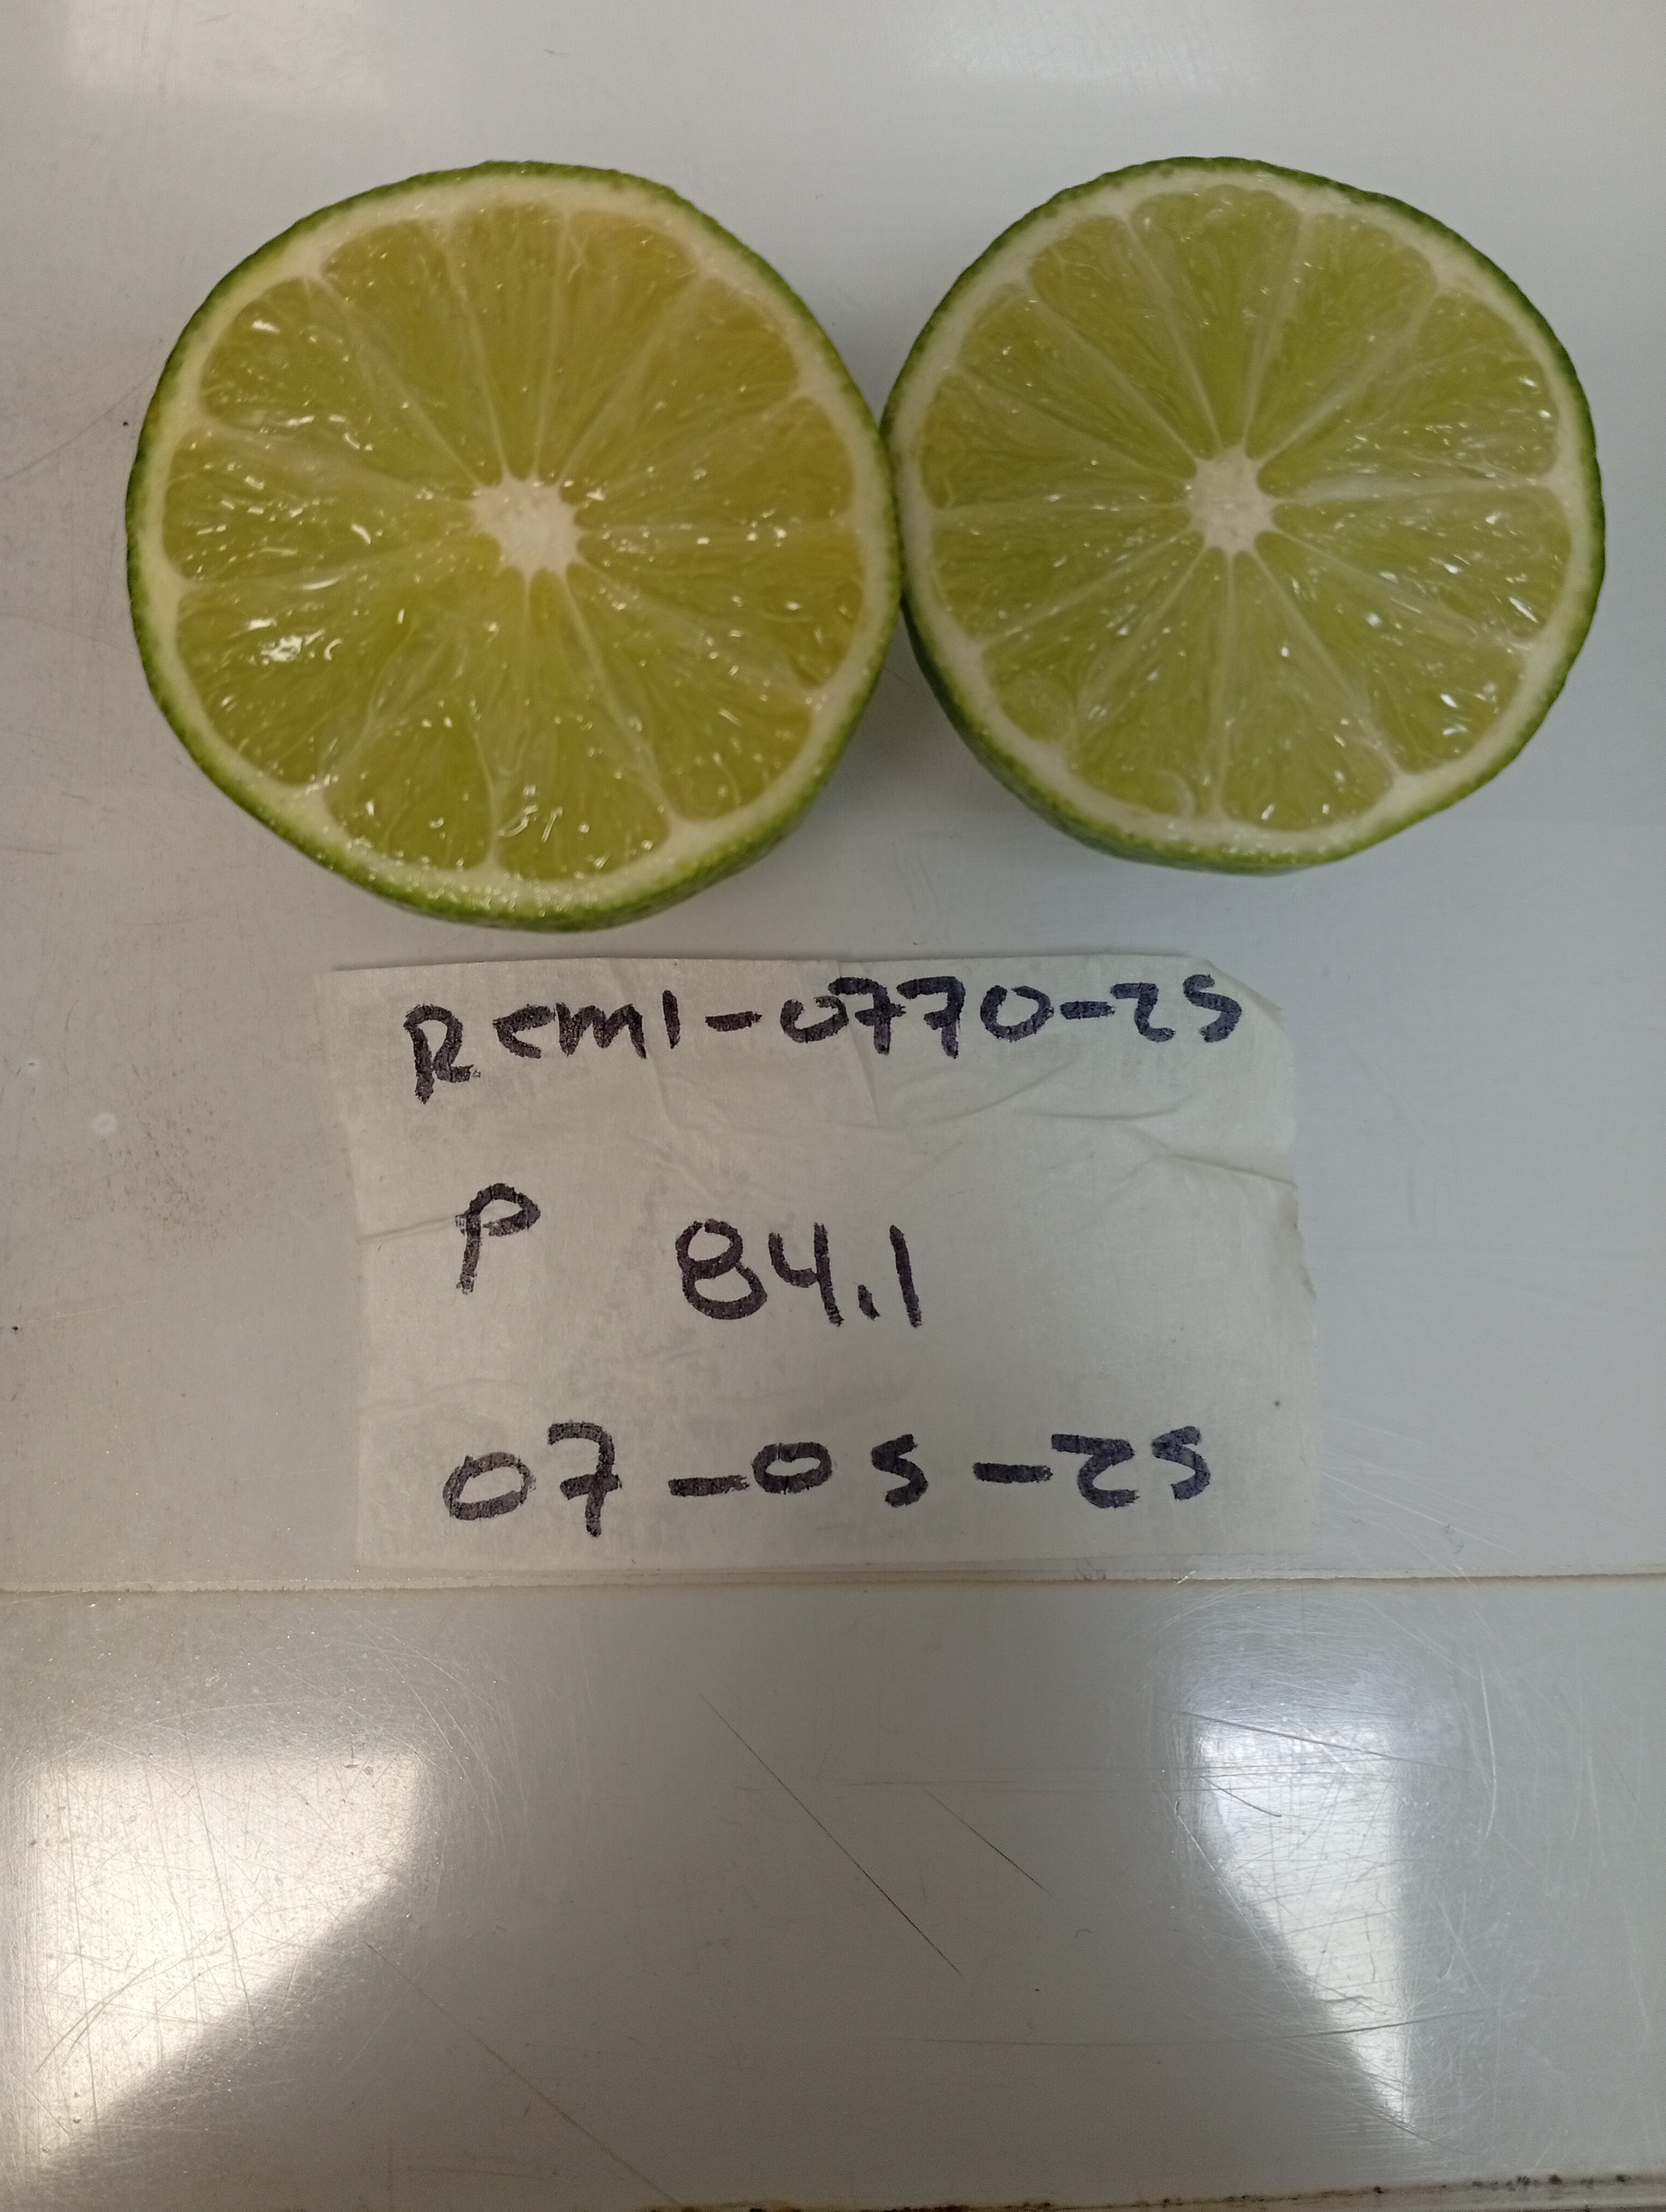 Remi-0770-25
P 84.1
07-05-25